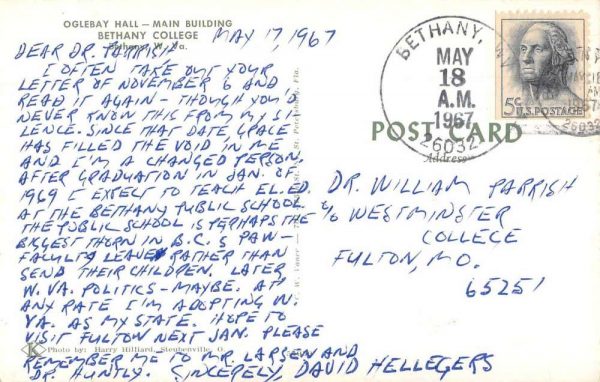 OGLEBAY HALL — MAIN BUILDING
BETHANY COLLEGE
Bethany, W. Va.
MAY 17, 1967
DEAR DR. PARRISH
I OFTEN TAKE OUT YOUR
LETTER OF NOVEMBER 6 AND
READ IT AGAIN - THOUGH YOU'D
NEVER KNOW THIS FROM MY SI-
LENCE. SINCE THAT DATE GRACE
HAS FILLED THE VOID IN ME
AND I'M A CHANGED PERSON.
AFTER GRADUATION IN JAN. OF
1969 I EXPECT TO TEACH EL. ED.
AT THE BETHANY PUBLIC SCHOOL
THE PUBLIC SCHOOL IS PERHAPS THE
BIGGEST THORN IN B.C.'S PAW-
FACULTY LEAVE RATHER THAN
SEND THEIR CHILDREN. LATER
W. VA. POLITICS - MAYBE. AT
ANY RATE I'M ADOPTING W.
VA. AS MY STATE. HOPE TO
VISIT FULTON NEXT JAN. PLEASE
REMEMBER ME TO MR. LARSEN AND
DR. HUNTLY. SINCERELY, DAVID HELLEGERS
K Photo by: Harry Hilliard, Steubenville, O.
St. Petersburg, Fla.
BETHANY, W.
MAY
18
A.M.
1967
26032
5¢ U.S. POSTAGE
26032
POST CARD
Address
DR. WILLIAM PARRISH
c/o WESTMINSTER
COLLEGE
FULTON, MO.
65251